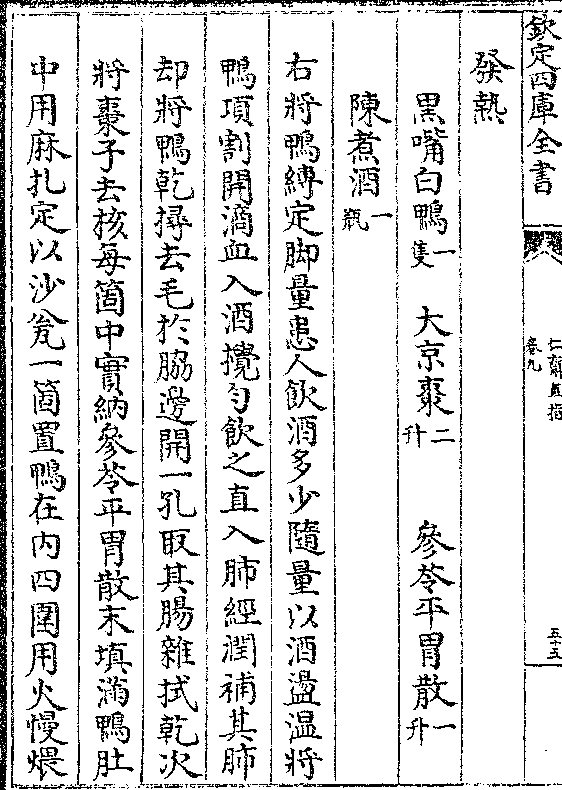 欽定四庫全書
仁齋直指
卷九
五十五
發熱
黑嘴白鴨一隻 大京棗二升 參苓平胃散一升
陳煮酒一瓶
右將鴨縛定脚量患人飲酒多少隨量以酒盪温將
鴨項割開滴血入酒攪勻飲之直入肺經潤補其肺
却將鴨乾撏去毛於脇邊開一孔取其腸雜拭乾次
將棗子去核每箇中實納參苓平胃散末填滿鴨肚
中用麻扎定以沙瓮一箇置鴨在内四圍用火慢煨